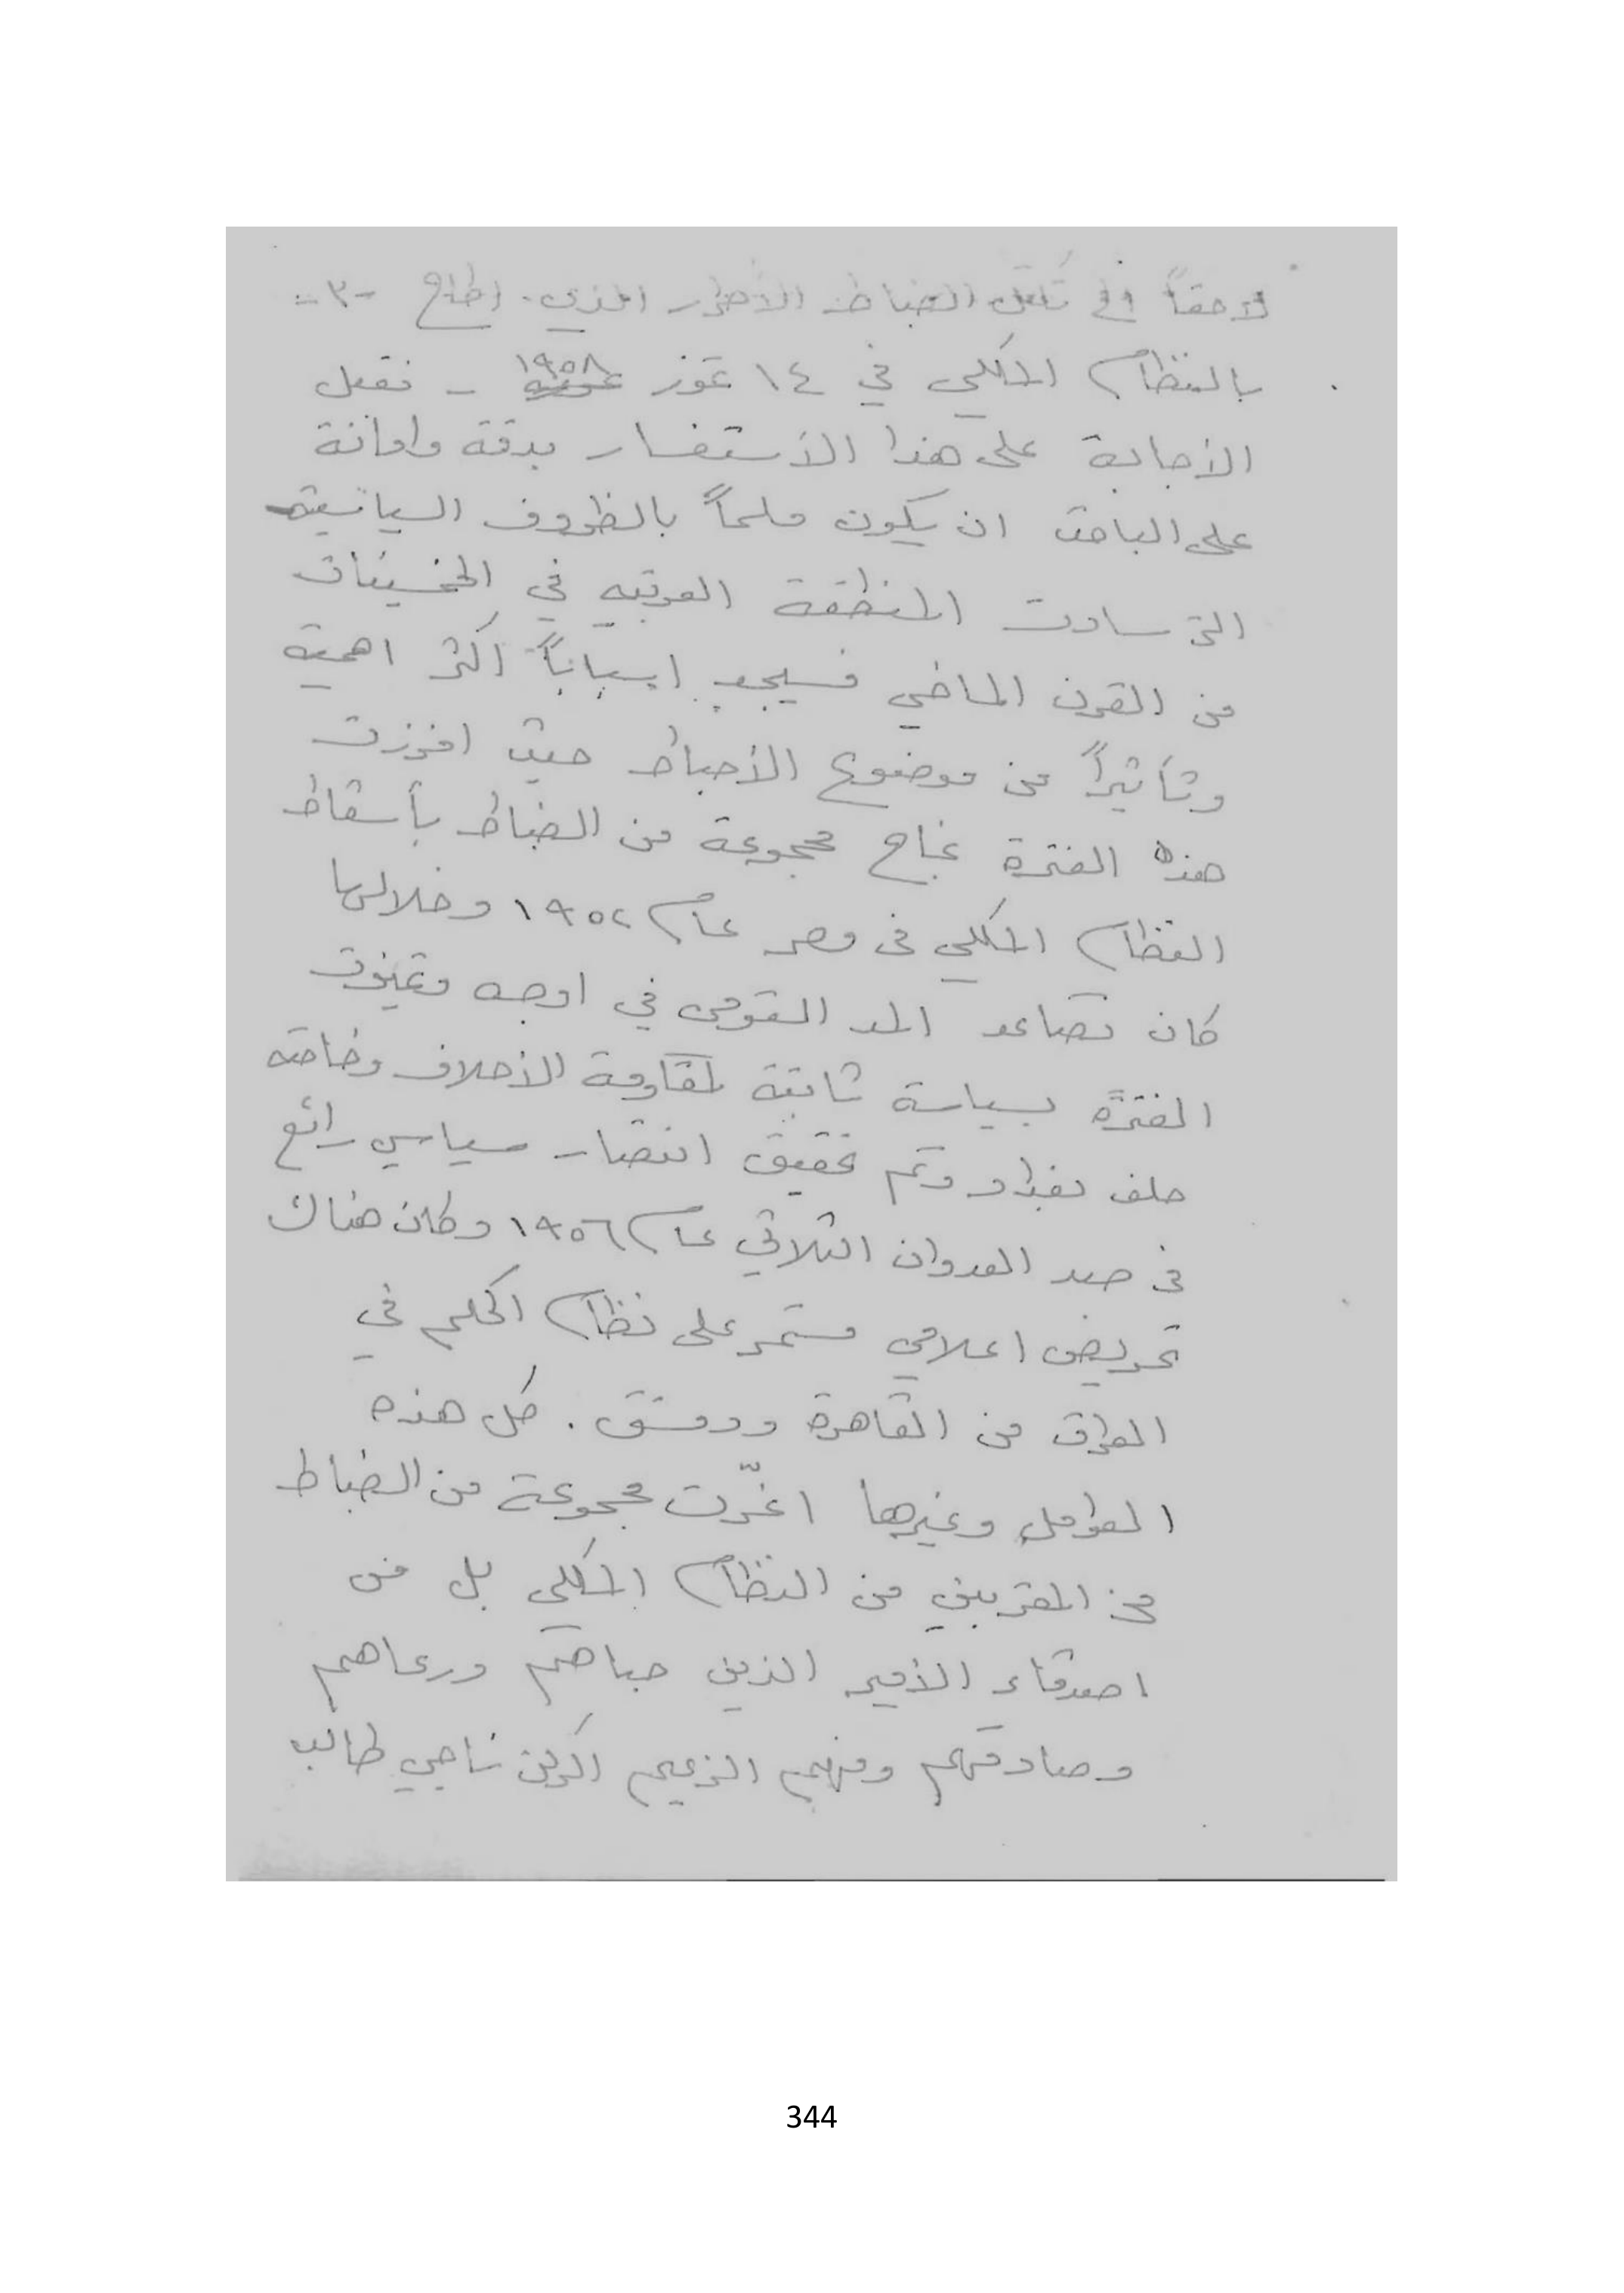 لاحقاً الى تكتل الضباط الأحرار الذي اطاح -٣-
بالنظام الملكي في ١٤ تموز ١٩٥٨ - فقبل
الأجابة على هذا الأستفسار بدقة وامانة
على الباحث ان يكون ملماً بالظروف السياسية
التي سادت المنطقة العربيه في الخمسينات
من القرن الماضي فسيجد اسباباً اكثر اهمية
وتأثيراً من موضوع الأحباط حيث افرزت
هذه الفترة نجاح مجموعة من الضباط بأسقاط
النظام الملكي في مصر عام ١٩٥٢ وخلالها
كان تصاعد المد القومي في اوجه وتميزت
الفترة بسياسة ثابتة لمقاومة الأحلاف وخاصة
حلف بغداد وتم تحقيق انتصار سياسي رائع
في صد العدوان الثلاثي عام ١٩٥٦ وكان هناك
تحريض اعلامي مستمر على نظام الحكم في
العراق من القاهرة ودمشق . كل هذه
العوامل وغيرها اغرّت مجموعة من الضباط
من المقربين من النظام الملكي بل من
اصدقاء الأمير الذين حباهم ورعاهم
وصادقهم ومنهم الزعيم الركن ناجي طالب
344